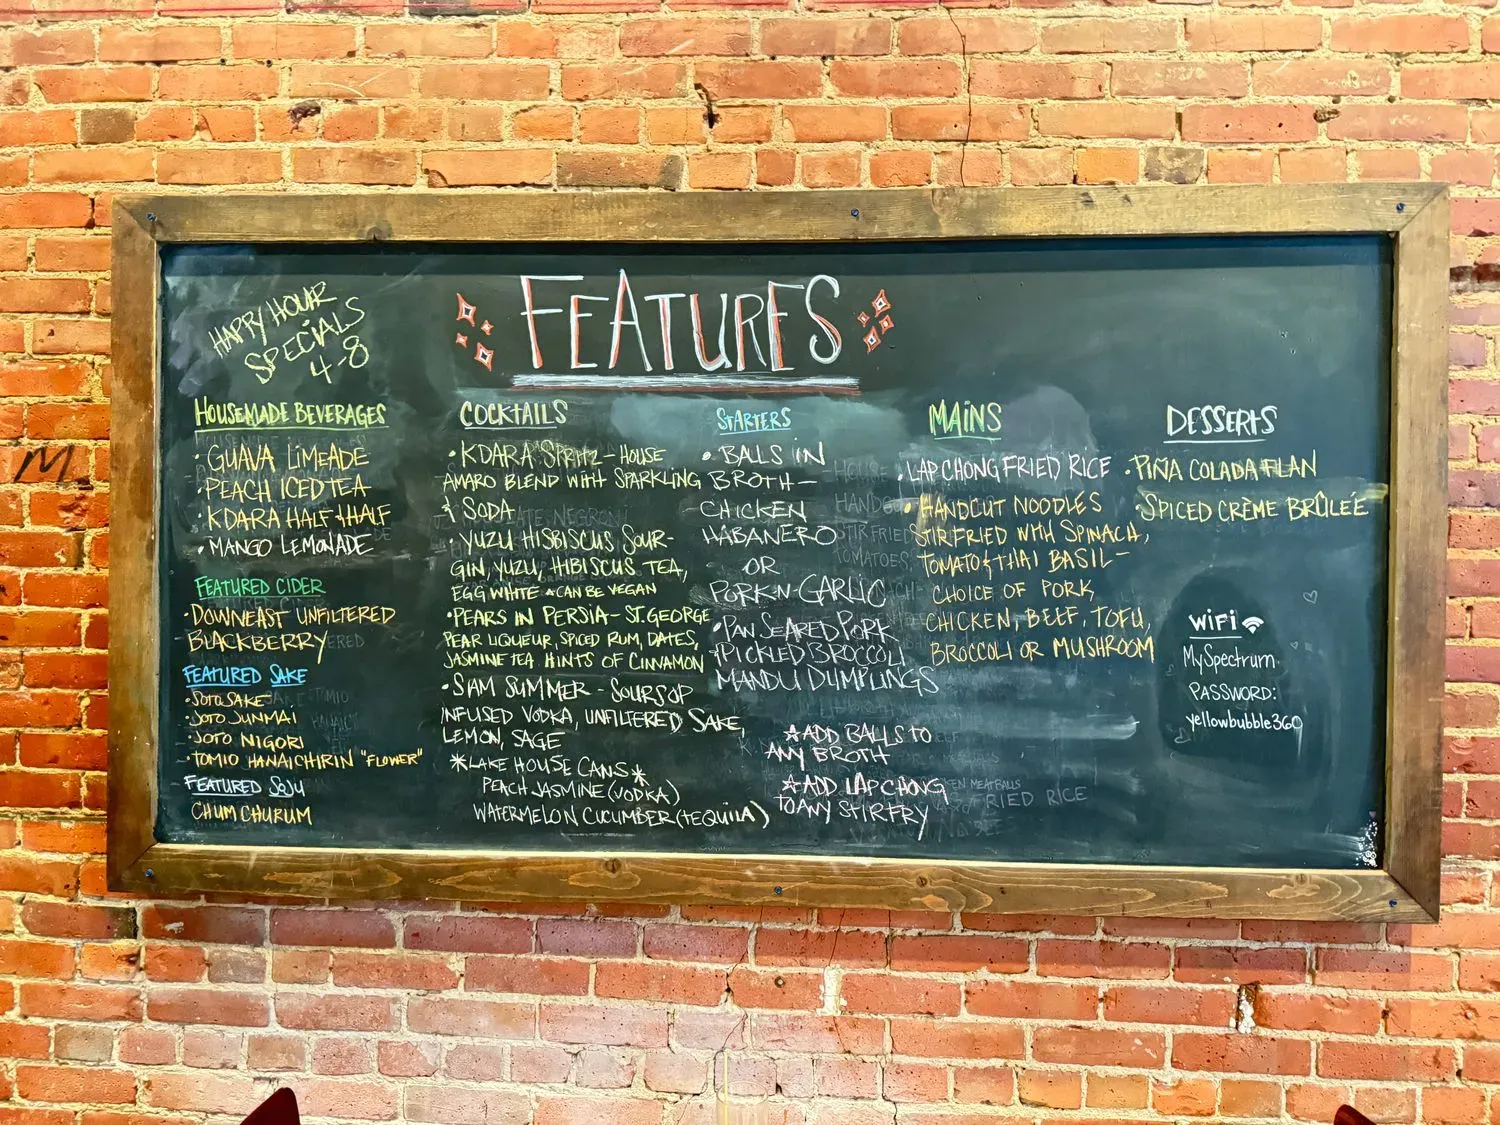 FEATURES
HAPPY HOUR
SPECIALS
4-8
HOUSEMADE BEVERAGES
• GUAVA LIMEADE
• PEACH ICED TEA
• KDARA HALF + HALF
• MANGO LEMONADE
FEATURED CIDER
• DOWNEAST UNFILTERED
BLACKBERRY
FEATURED SAKE
• SOTO SAKE
• JOTO JUNMAI
• JOTO NIGORI
• TOMIO HANAICHIRIN "FLOWER"
FEATURED SOJU
CHUM CHURUM
COCKTAILS
• KDARA SPRITZ - HOUSE
AMARO BLEND WITH SPARKLING
& SODA
• YUZU HISBISCUS SOUR-
GIN, YUZU, HIBISCUS TEA,
EGG WHITE * CAN BE VEGAN
• PEARS IN PERSIA - ST. GEORGE
PEAR LIQUEUR, SPICED RUM, DATES,
JASMINE TEA HINTS OF CINNAMON
• SIAM SUMMER - SOURSOP
INFUSED VODKA, UNFILTERED SAKE,
LEMON, SAGE
*LAKE HOUSE CANS*
PEACH JASMINE (VODKA)
WATERMELON CUCUMBER (TEQUILA)
STARTERS
• BALLS IN
BROTH -
CHICKEN
HABANERO
OR
PORK-N-GARLIC
• PAN SEARED PORK
PICKLED BROCCOLI
MANDU DUMPLINGS
☆ADD BALLS TO
ANY BROTH
☆ADD LAPCHONG
TO ANY STIRFRY
MAINS
• LAP CHONG FRIED RICE
• HANDCUT NOODLES
STIRFRIED WITH SPINACH,
TOMATO & THAI BASIL -
CHOICE OF PORK,
CHICKEN, BEEF, TOFU,
BROCCOLI OR MUSHROOM
FRIED RICE
DESSERTS
• PIÑA COLADA FLAN
• SPICED CRÈME BRÛLÉE
WiFi
MySpectrum
PASSWORD:
yellowbubble360
M